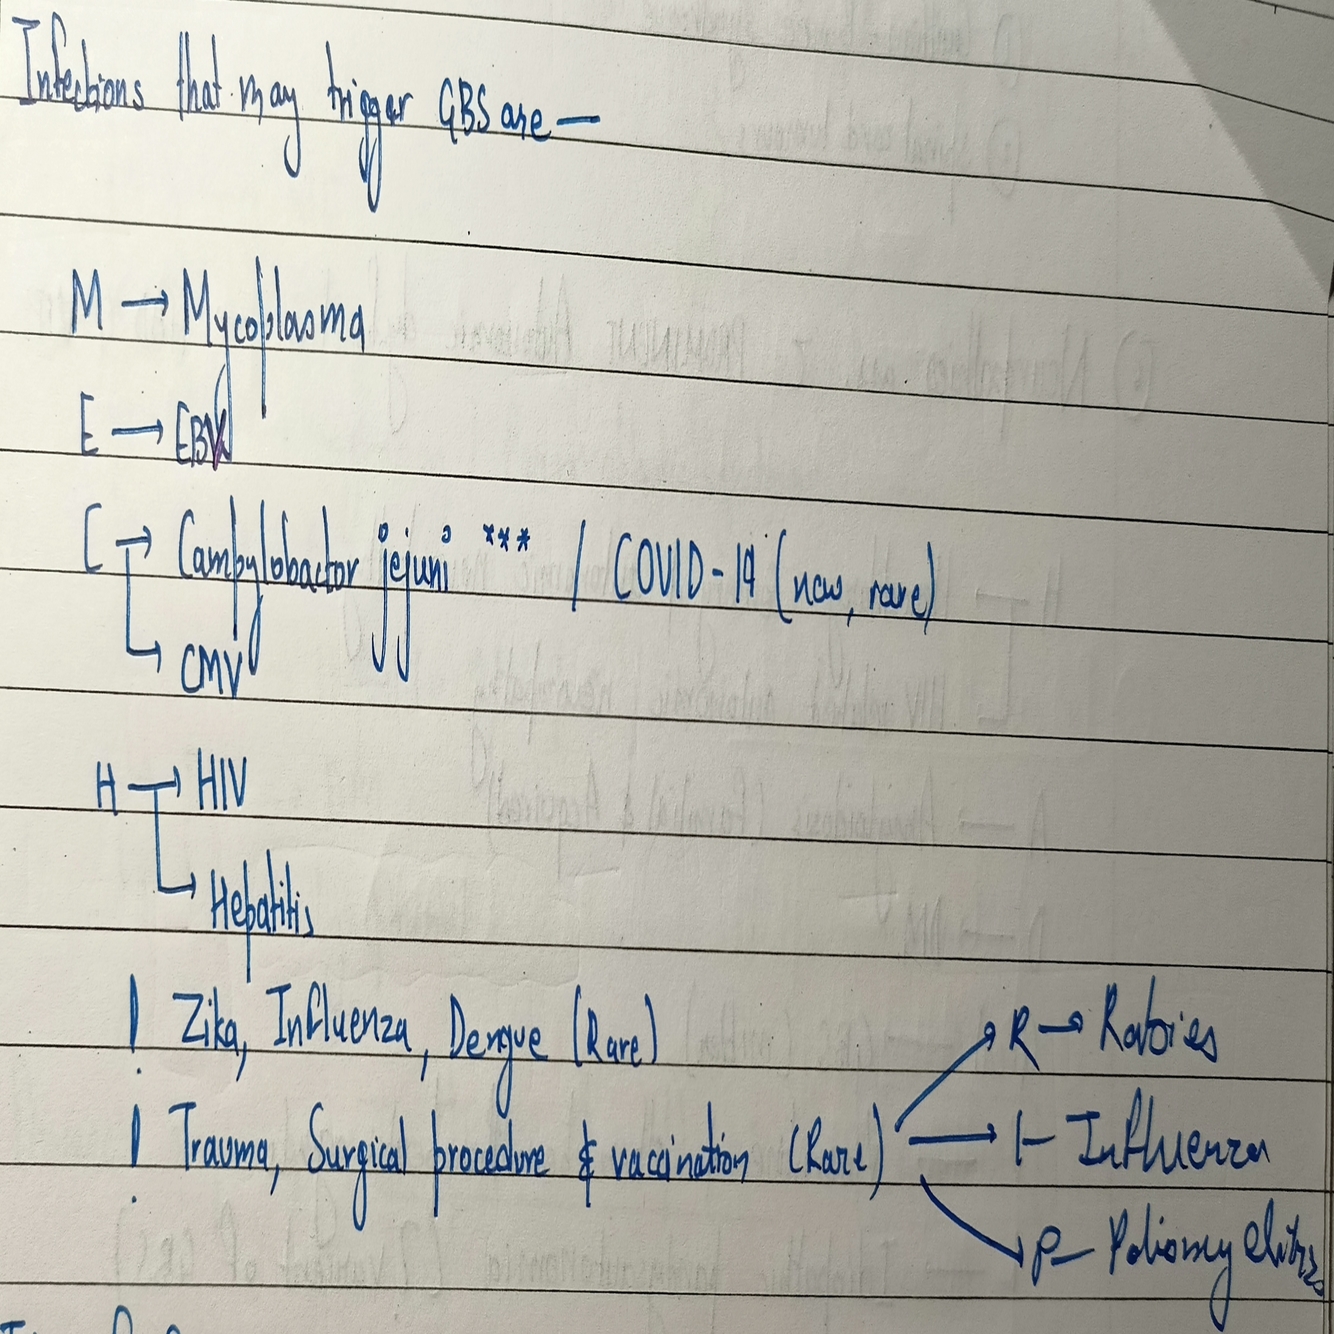 Infections that may trigger GBS are —
M → Mycoplasma
E → EBV
C → Campylobacter jejuni *** / COVID-19 (now, rare)
→ CMV
H → HIV
→ Hepatitis
! Zika, Influenza, Dengue (Rare)
R → Rabies
! Trauma, Surgical procedure & vaccination (Rare) → I – Influenza
P – Poliomyelitis